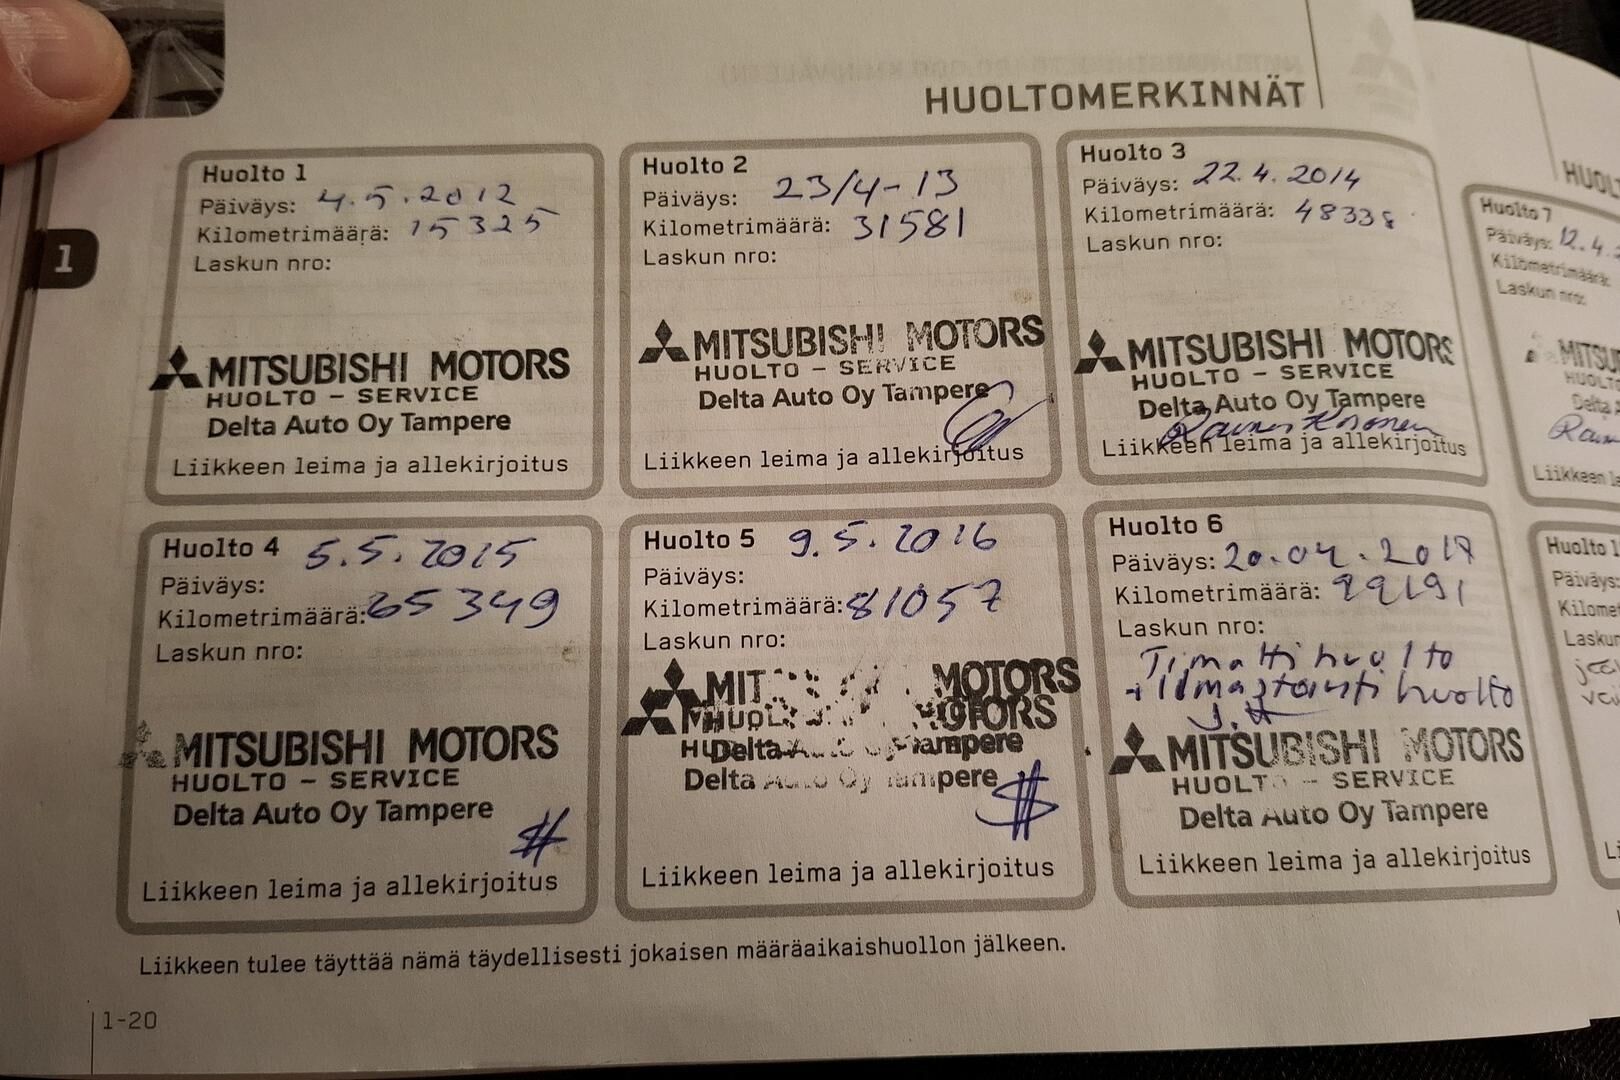 HUOLTOMERKINNÄT
1
Huolto 1
Päiväys: 4.5.2012
Kilometrimäärä: 15325
Laskun nro:
MITSUBISHI MOTORS
HUOLTO - SERVICE
Delta Auto Oy Tampere
Liikkeen leima ja allekirjoitus
Huolto 2
Päiväys: 23/4-13
Kilometrimäärä: 31581
Laskun nro:
MITSUBISHI MOTORS
HUOLTO - SERVICE
Delta Auto Oy Tampere
Liikkeen leima ja allekirjoitus
Huolto 3
Päiväys: 22.4.2014
Kilometrimäärä: 48338
Laskun nro:
MITSUBISHI MOTORS
HUOLTO - SERVICE
Delta Auto Oy Tampere
Liikkeen leima ja allekirjoitus
Huolto 4 5.5.2015
Päiväys:
Kilometrimäärä: 65349
Laskun nro:
MITSUBISHI MOTORS
HUOLTO - SERVICE
Delta Auto Oy Tampere
Liikkeen leima ja allekirjoitus
Huolto 5 9.5.2016
Päiväys:
Kilometrimäärä: 81057
Laskun nro:
MOTORS
Delta Auto Oy Tampere
Liikkeen leima ja allekirjoitus
Huolto 6
Päiväys: 20.04.2017
Kilometrimäärä: 99191
Laskun nro:
Timattihuolto
+ Ilmastointihuolto
MITSUBISHI MOTORS
HUOLTO - SERVICE
Delta Auto Oy Tampere
Liikkeen leima ja allekirjoitus
Liikkeen tulee täyttää nämä täydellisesti jokaisen määräaikaishuollon jälkeen.
1-20
HUOLT
Huolto 7
Päiväys: 12.4.2
Kilometrimäärä:
Laskun nro:
MITSU
HUOLTO
Delta A
Liikkeen le
Huolto 1
Päiväys:
Kilomet
Laskun